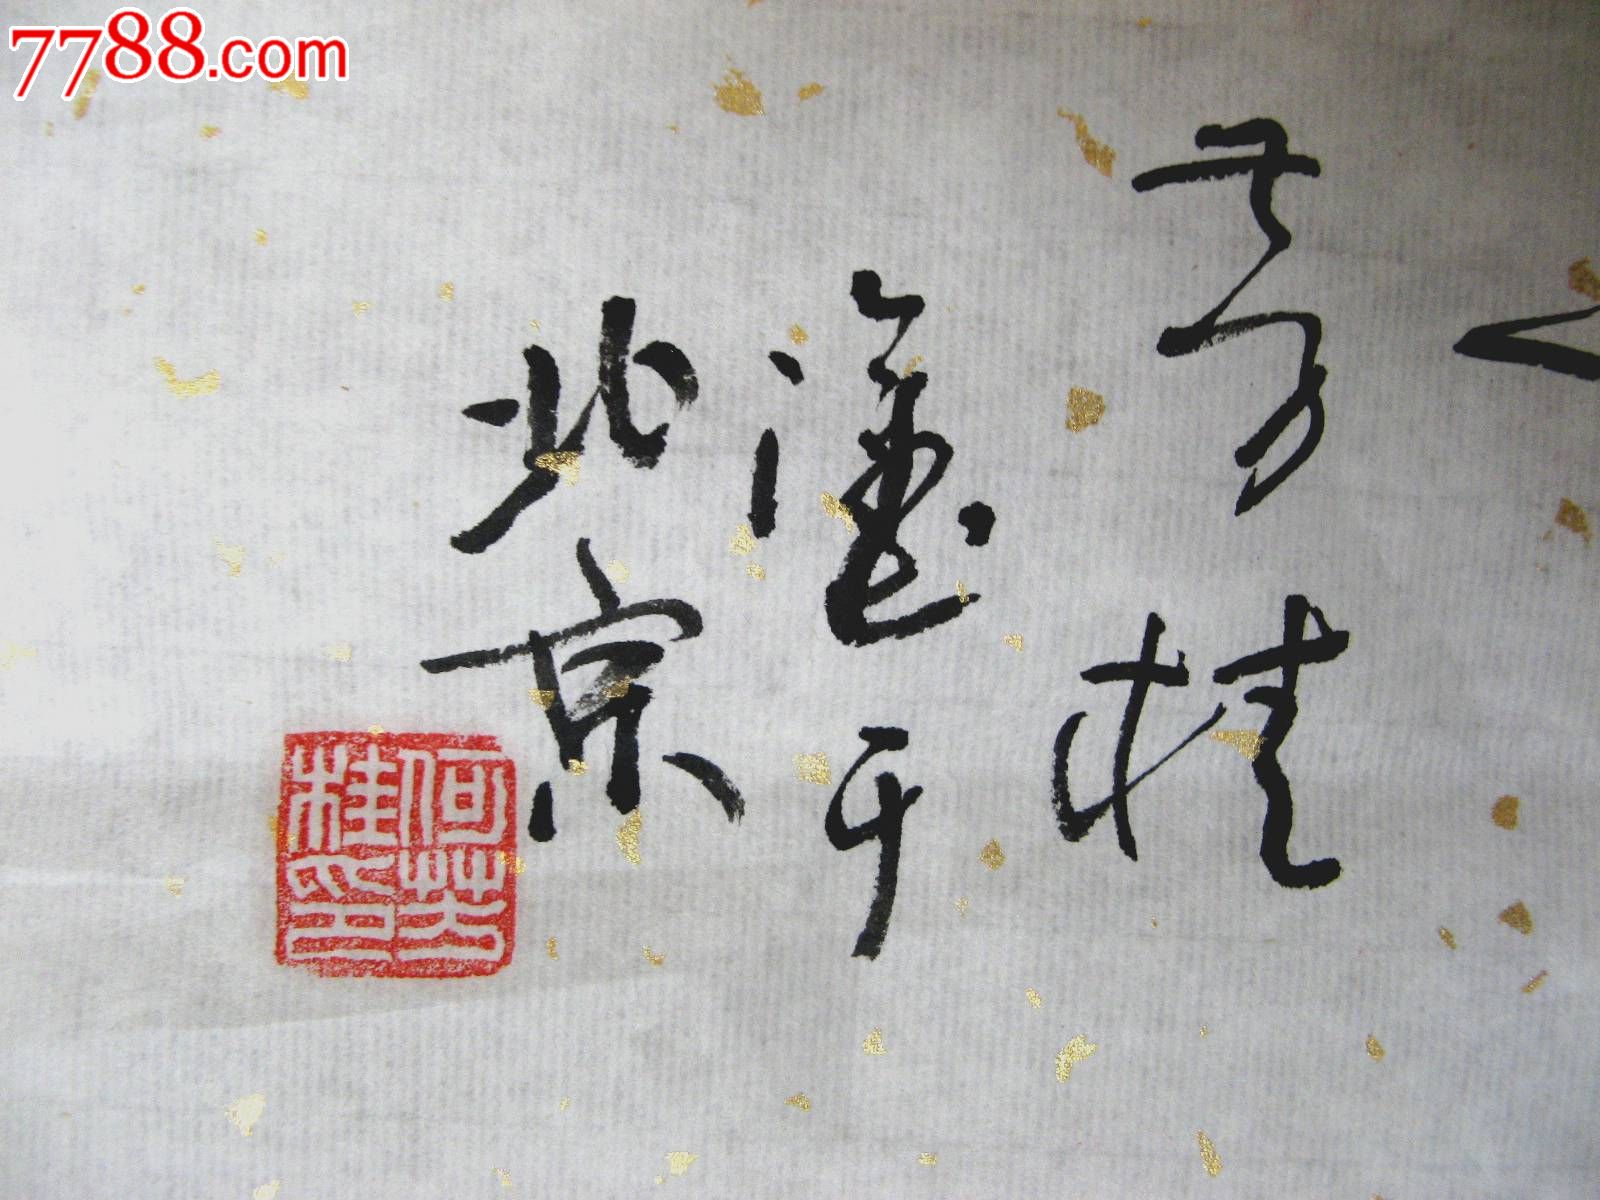 7788.com
芳桂
于
北京
何芳
桂印